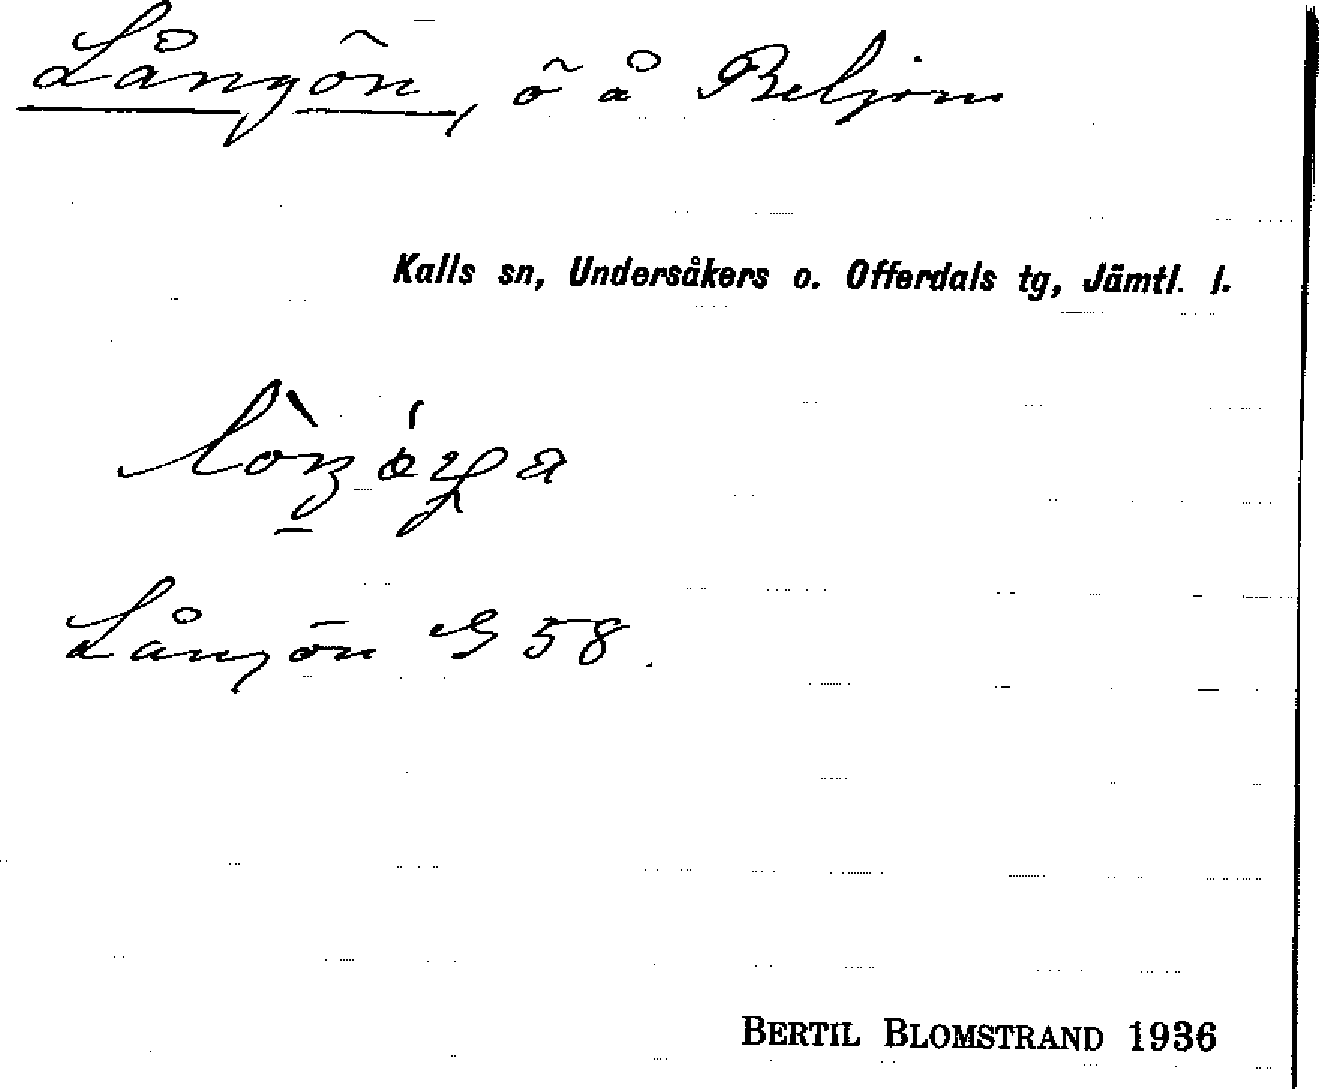 Långön, ö å Beljom
Kalls sn, Undersåkers o. Offerdals tg, Jämtl. l.
Långön G 58.
BERTIL BLOMSTRAND 1936